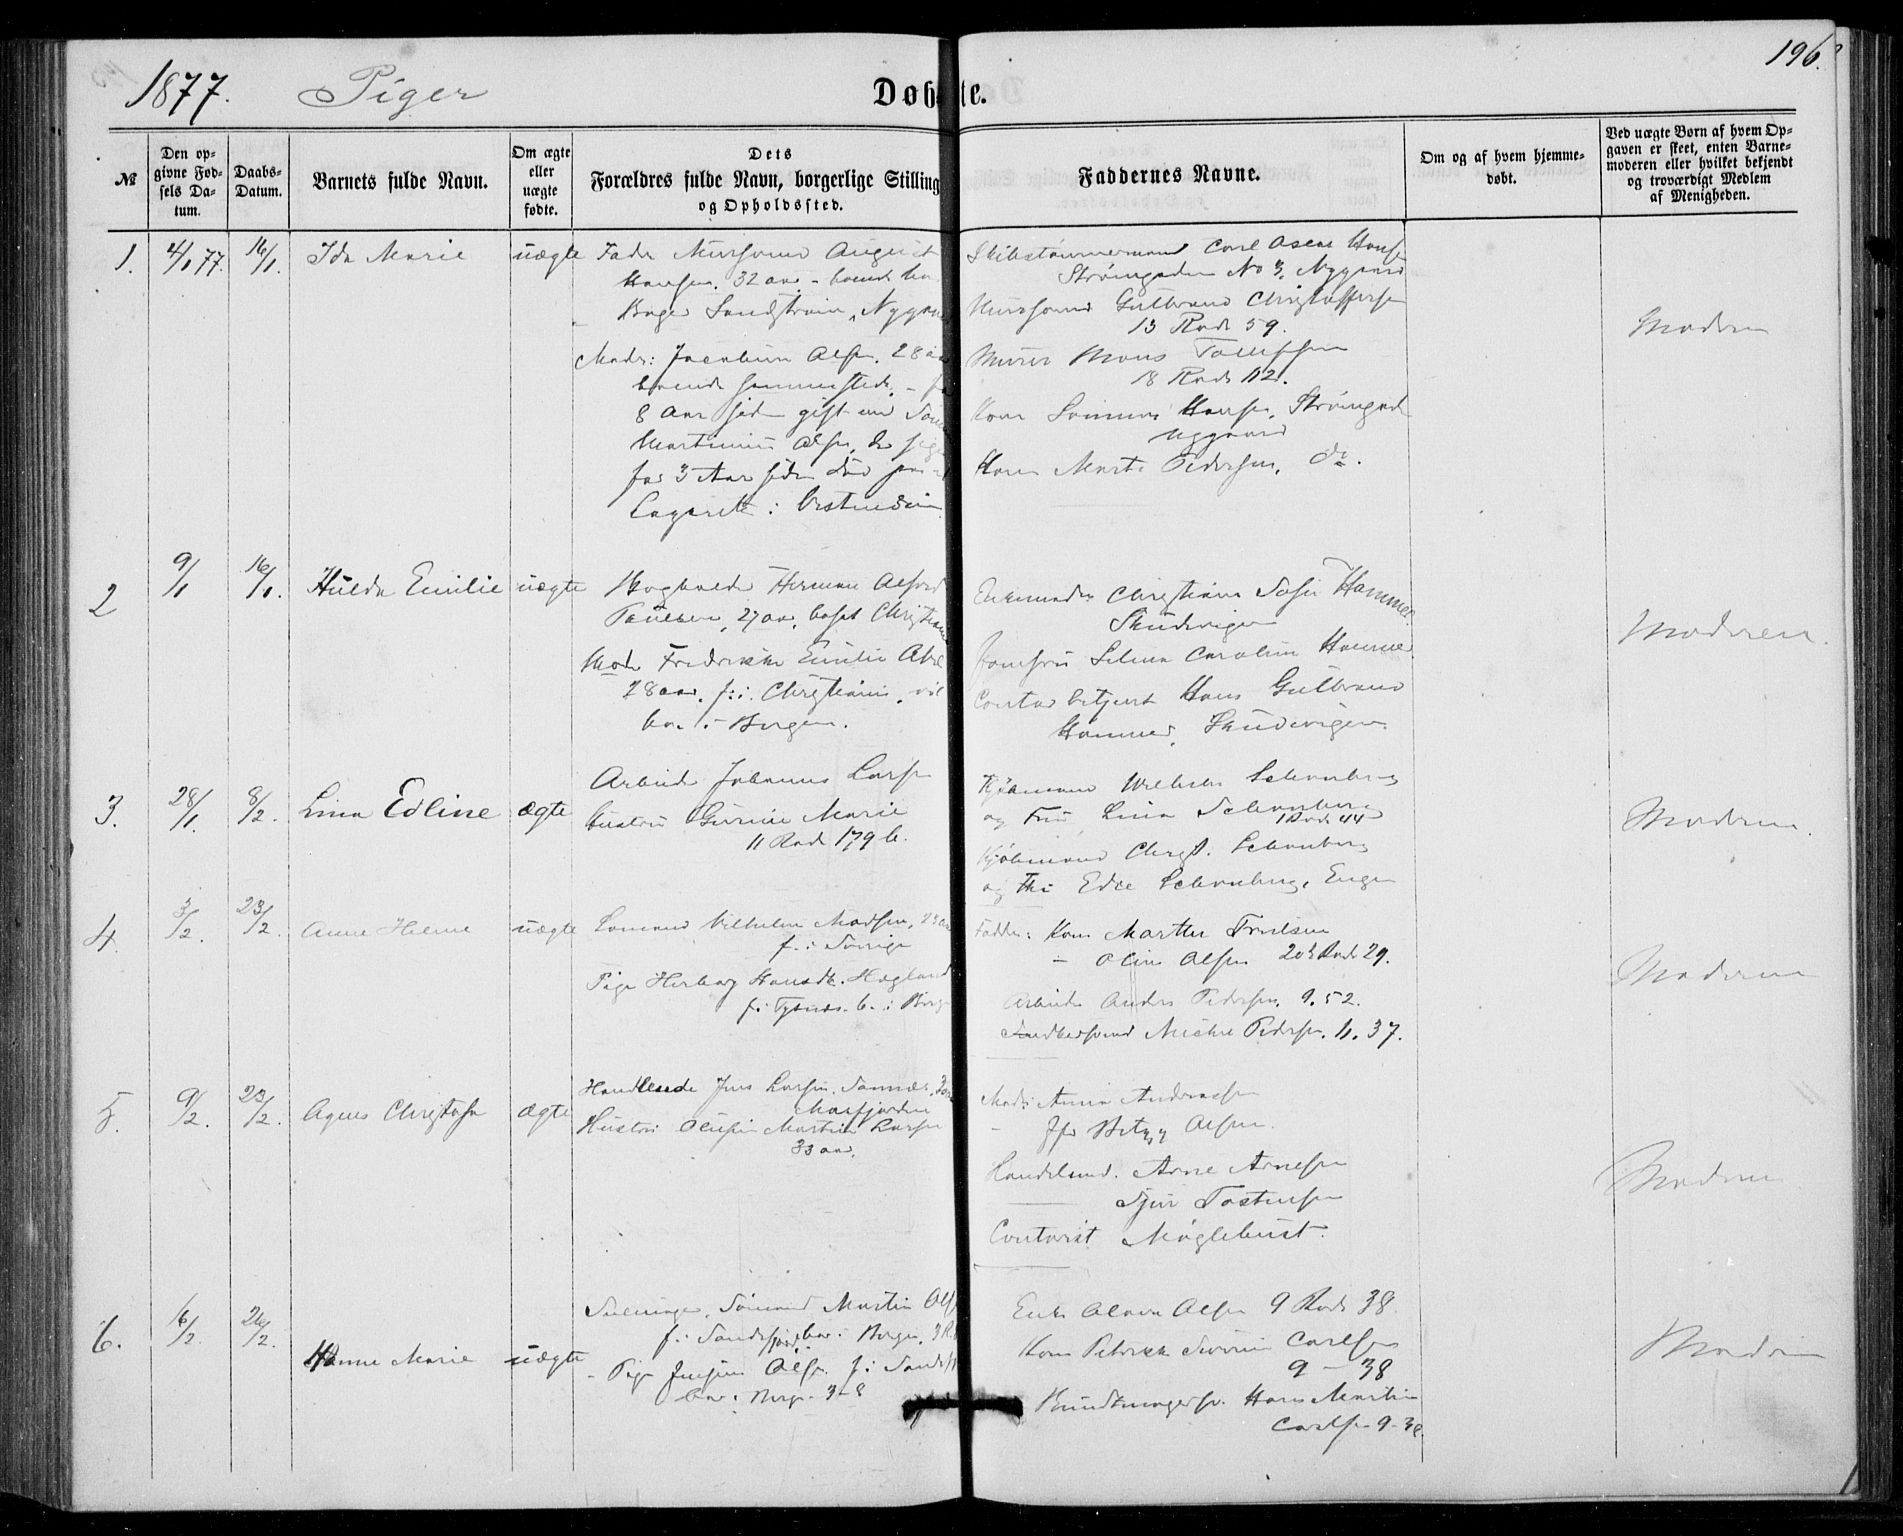 1877. Piger Døbte. 196.
№
Den opgivne Fødsels Datum.
Daabs-Datum.
Barnets fulde Navn.
Om ægte eller uægte fødte.
Dets Forældres fulde Navn, borgerlige Stilling og Opholdssted.
Faddernes Navne.
Om og af hvem hjemmedøbt.
Ved uægte Børn af hvem Opgaven er skeet, enten Barnemoderen eller hvilket bekjendt og troværdigt Medlem af Menigheden.
1. 4/1 77. 16/1. Ida Marie uægte
Fader Mursvend August
Hansen. 32 aar - boende hos
Bager Sandstrøm, Nygaard
Moder: Jacobine Olsen. 28 aar
boende sammesteds. - for
8 Aar siden gift med
Martinius Olsen, der
for 3 Aar siden død paa
Lazareth i Vestindien
Skibstømmermand Carl Oscar Hansen
Strømgaden No 3. Nygaard
Mursvend Gulbrand Christoffersen
13 Rode 59.
Murer Mons Tollefsen
18 Rode 112.
Kone Hansen, Strømgad
Nygaard
Kone Marte Pedersen, do.
Moderen
2 9/1 16/1. Hulda Emilie uægte
Bogholder Herman Alfred
Paulsen, 27 aar, bosat Christiania
Moder Fredrikke Emilie
28 aar. f: i Christiania,
boe. i Bergen.
Christiane Sofie Hammer
Skudevigen
Jomfru Selma Caroline Hammer
Contorbetjent Hans Gulbrand
Hammer, Skudevigen
Moderen.
3. 28/1. 8/2. Lina Edline ægte
Arbeider Johannes Larsen
Hustru Gurine Marie
11 Rode 179 b.
Kjøbmand Wilhelm Schønberg
og Fru Lina Schønberg
1 Rode 44
Kjøbmand Christ. Schønberg
og Edle Schønberg, Engen
Moderen.
4. 3/2. 23/2. Anne Helene uægte
Sømand Vilhelm Madsen, 23 aar
f. i Sverige
Pige Herborg Hansdtr. Hægland
f: i Tysnæs. b. i Berg
Fadder: Kone Marthe Truelsen
- Oline Olsen 20 Rode 29.
Arbeider Anders Pedersen, 9. 52.
Michel Pedersen. 11. 37.
Moderen
5. 9/2. 23/2. Agnes Christofa ægte
Handlende Jens Larsen
Masfjorden
Hustru Martine Larsen
33 aar.
Mad: Anna Andreassen
- Jfr Betzy Olsen.
Handelsmd. Arne Arnesen
Sjur Tostensen
Contorist Møglebust.
Moderen
6. 16/2. 26/2. Hanna Marie uægte
Sømand Martin Olsen
f. i Sandefjord, boe. i Bergen, 3 R.
- Pige Olsen f. i Sandefj
boe i Berg. 3-8
Enke Olava Olsen 9 Rode 38.
Kone Petrikke Severine Carlsen
9 - 38
Hans Martin
Carlsen 9-38
Moderen